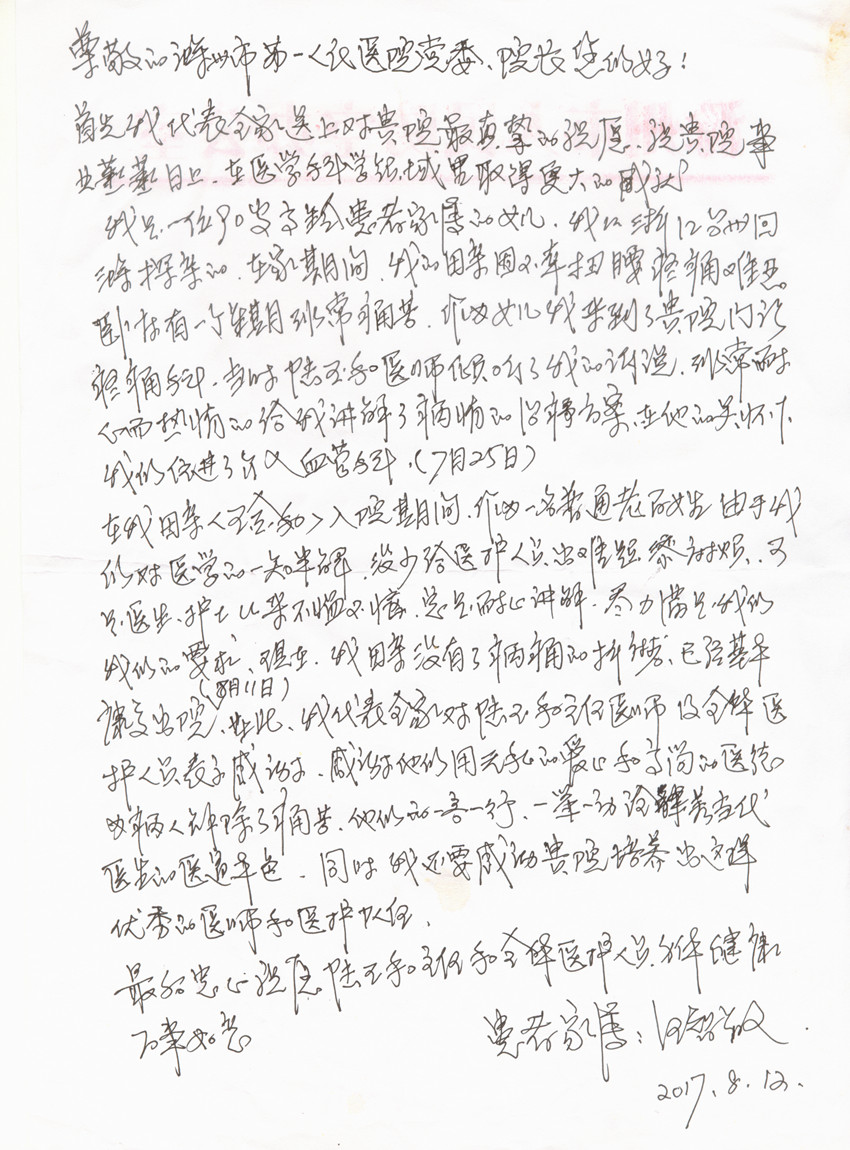 尊敬的滁州市第一人民医院党委、院长您们好！
首先我代表全家送上对贵院最真挚的祝愿、祝贵院事
业蒸蒸日上、在医学科学领域里取得更大的成就
我是一位90岁高龄患者家属的女儿．我从浙江台州回
滁探亲的．在家期间．我的母亲因不幸扭腰疼痛难忍。
卧床有一个星期非常痛苦．作为女儿我来到了贵院门诊
疼痛科．当时陆玉和医师倾听了我的诉说．非常耐
心而热情的给我讲解了病情的治疗方案、在他的关怀下、
我们住进了介入血管科．(7月25日)
在我母亲〈〉入院期间．作为一名普通老百姓由于我
们对医学的一知半解，没少给医护人员出难题添麻烦．可
是医生、护士从来不恼不憎．总是耐心讲解．尽力满足我们
我们的要求、现在．我母亲没有了病痛的折磨、已经基本
康复出院、(8月11日)在此、我代表全家对陆玉和主任医师及全体医
护人员表示感谢．感谢他们用无私的爱心和高尚的医德
为病人解除了痛苦．他们的一言一行、一举一动诠释着当代
医生的医者本色．同时我还要感动贵院培养出这样
优秀的医师和医护队伍．
最后忠心祝愿陆玉和主任和全体医护人员身体健康
万事如意
患者家属：敏
2017．8．12．